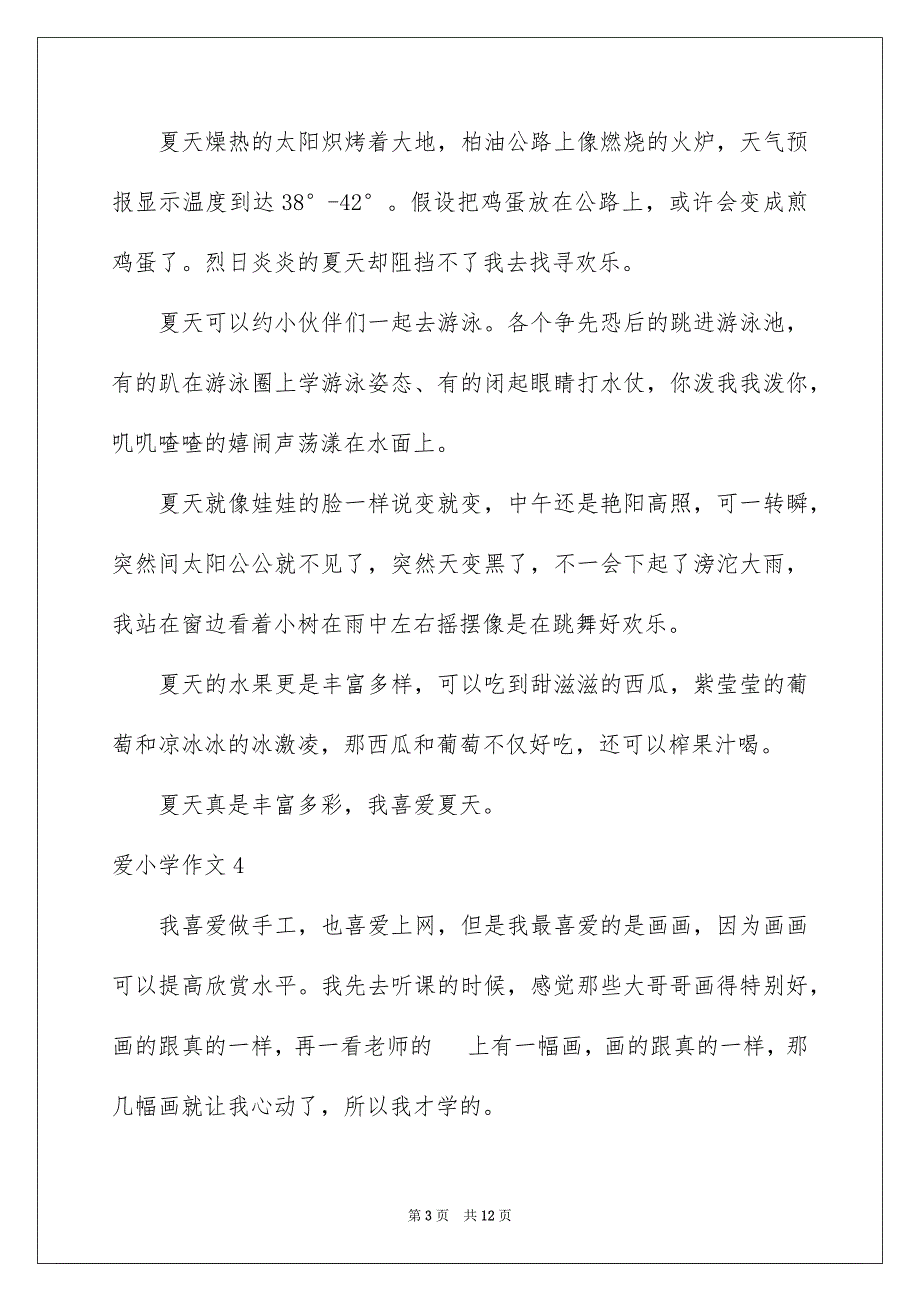 夏天燥热的太阳炽烤着大地，柏油公路上像燃烧的火炉，天气预
报显示温度到达 38°-42°。假设把鸡蛋放在公路上，或许会变成煎
鸡蛋了。烈日炎炎的夏天却阻挡不了我去找寻欢乐。
夏天可以约小伙伴们一起去游泳。各个争先恐后的跳进游泳池，
有的趴在游泳圈上学游泳姿态、有的闭起眼睛打水仗，你泼我我泼你，
叽叽喳喳的嬉闹声荡漾在水面上。
夏天就像娃娃的脸一样说变就变，中午还是艳阳高照，可一转瞬，
突然间太阳公公就不见了，突然天变黑了，不一会下起了滂沱大雨，
我站在窗边看着小树在雨中左右摇摆像是在跳舞好欢乐。
夏天的水果更是丰富多样，可以吃到甜滋滋的西瓜，紫莹莹的葡
萄和凉冰冰的冰激凌，那西瓜和葡萄不仅好吃，还可以榨果汁喝。
夏天真是丰富多彩，我喜爱夏天。
爱小学作文 4
我喜爱做手工，也喜爱上网，但是我最喜爱的是画画，因为画画
可以提高欣赏水平。我先去听课的时候，感觉那些大哥哥画得特别好，
画的跟真的一样，再一看老师的 上有一幅画，画的跟真的一样，那
几幅画就让我心动了，所以我才学的。
第 3 页 共 12 页